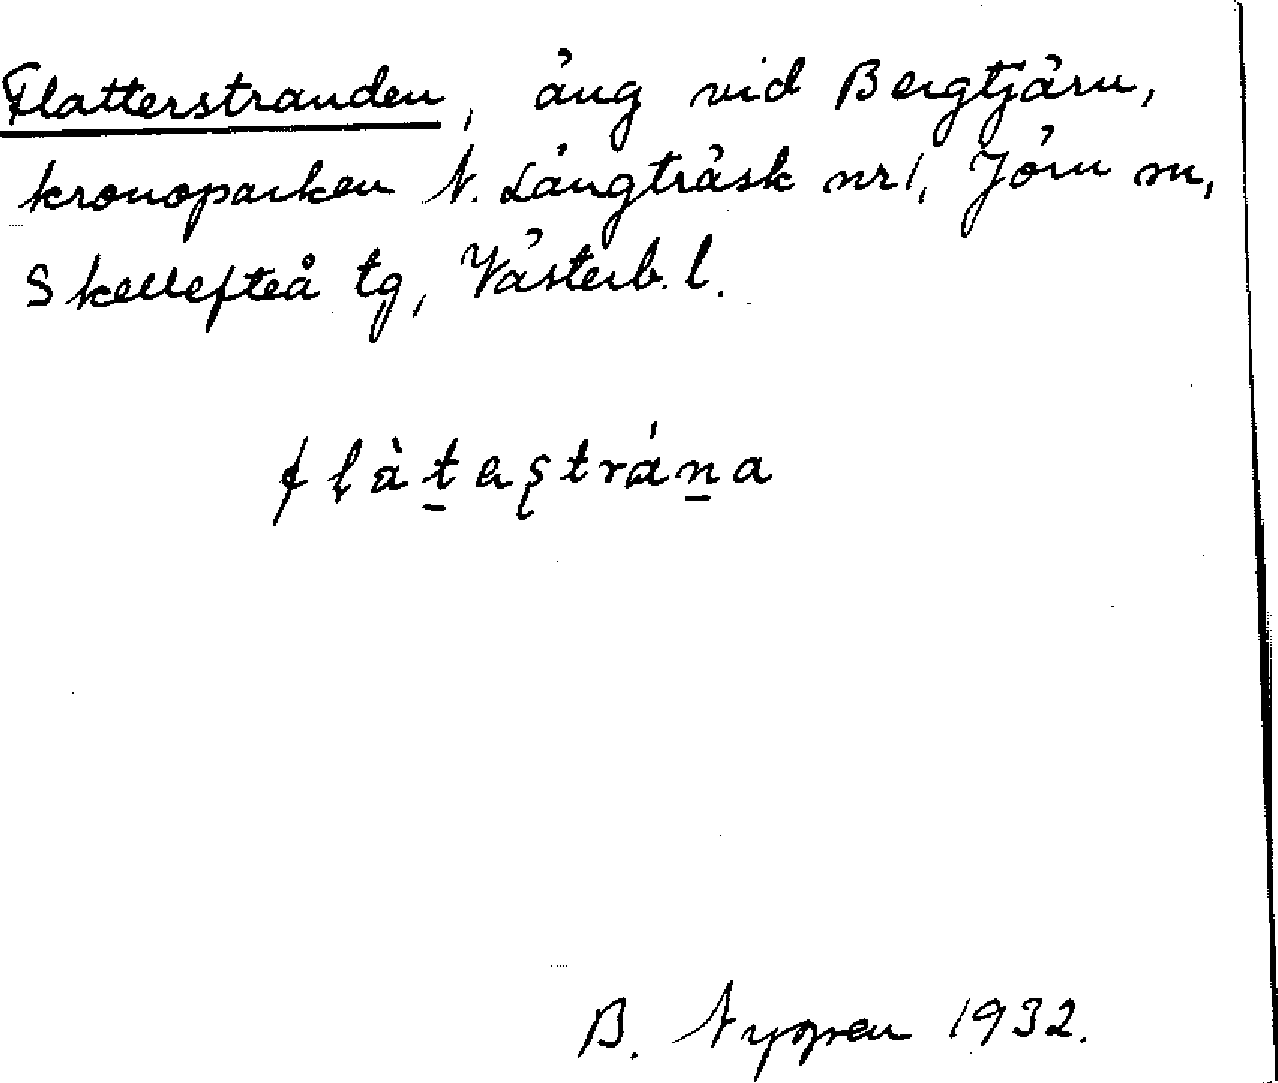 Flatterstranden, äng vid Bergtjärn,
kronoparken N. Långträsk nr 1, Jörn sn,
Skellefteå tg, Västerb. l.
flàt̠eştrán̠a
B. Nygren 1932.